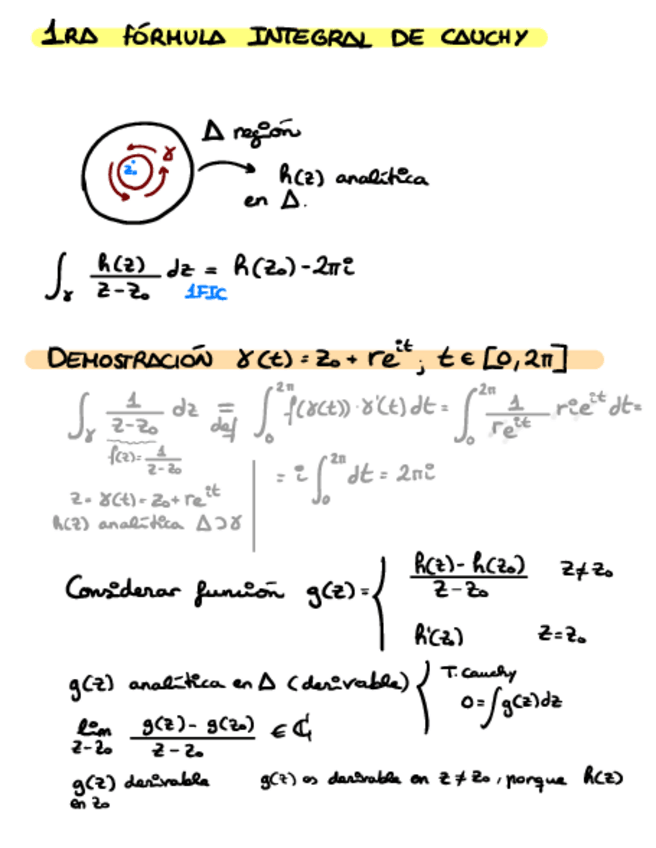 1RA FÓRMULA INTEGRAL DE CAUCHY
Δ región
γ
z₀
h(z) analítica
en Δ.
∫_γ h(z)/(z-z₀) dz = h(z₀)-2πi
1FIC
DEMOSTRACIÓN γ(t)=z₀+re^{it}; t∈[0,2π]
∫_γ 1/(z-z₀) dz =_{def} ∫_0^{2π} f(γ(t))·γ'(t)dt = ∫_0^{2π} 1/(re^{it}) rie^{it}dt=
f(z)=1/(z-z₀)
= i∫_0^{2π} dt = 2πi
z=γ(t)=z₀+re^{it}
h(z) analítica Δ⊃γ
Considerar función g(z)={ (h(z)-h(z₀))/(z-z₀) z≠z₀
h'(z₀) z=z₀
g(z) analítica en Δ (derivable) { T. Cauchy
0=∫g(z)dz
lim_{z-z₀} (g(z)-g(z₀))/(z-z₀) ∈ ℂ
g(z) derivable g(z) es derivable en z≠z₀, porque h(z)
en z₀